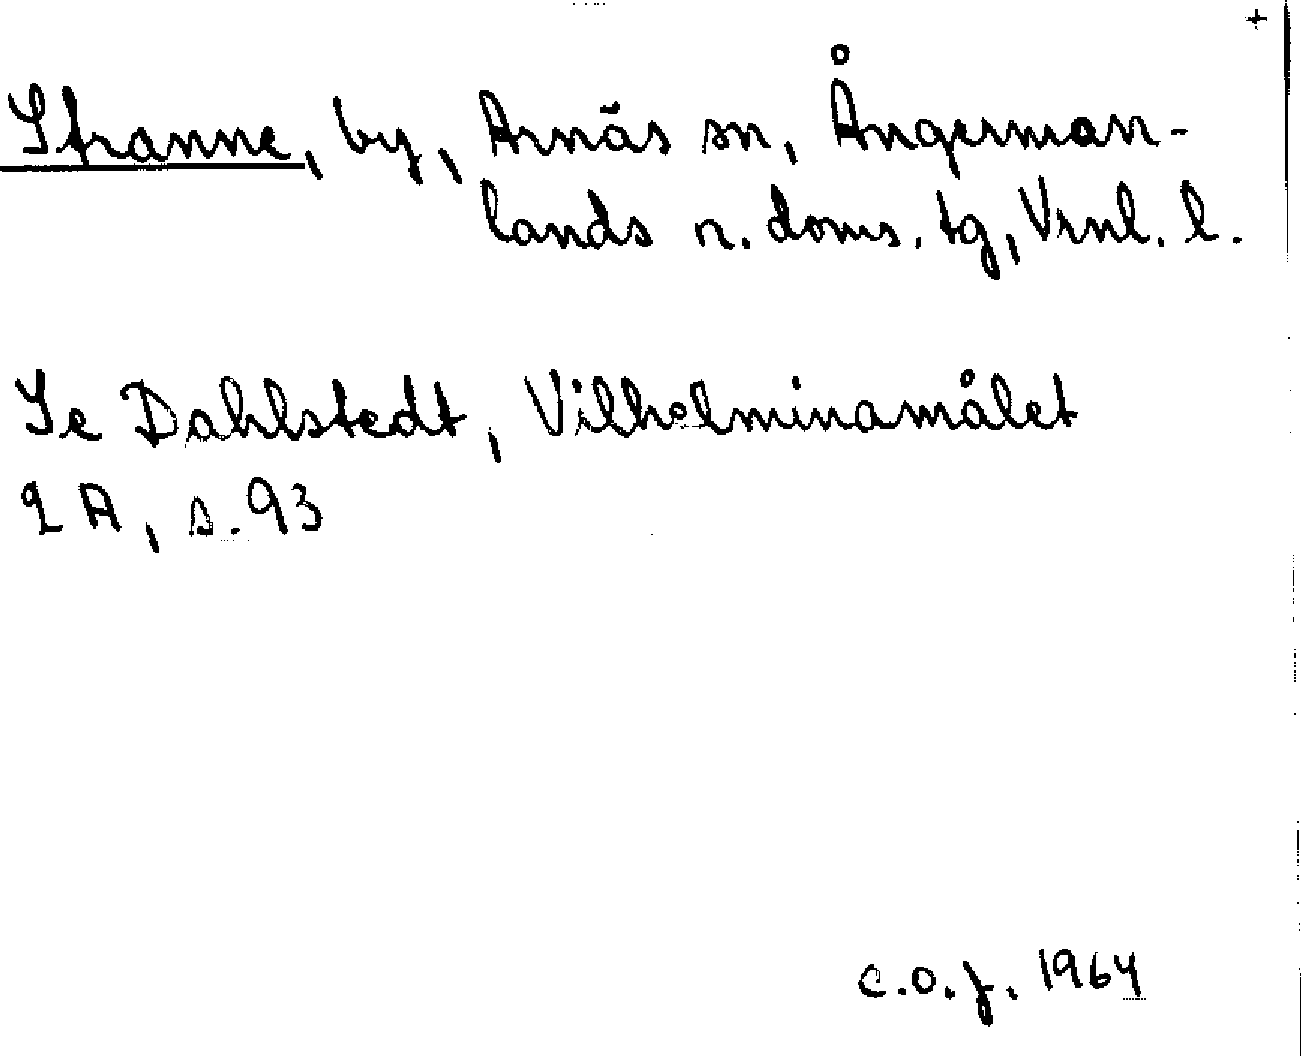 +
Stranne, by, Arnäs sn, Ångerman-
lands n. doms. tg, Vrnl. l.
Se Dahlstedt, Vilhelminamålet
2 A, s. 93
C.O.J. 1964